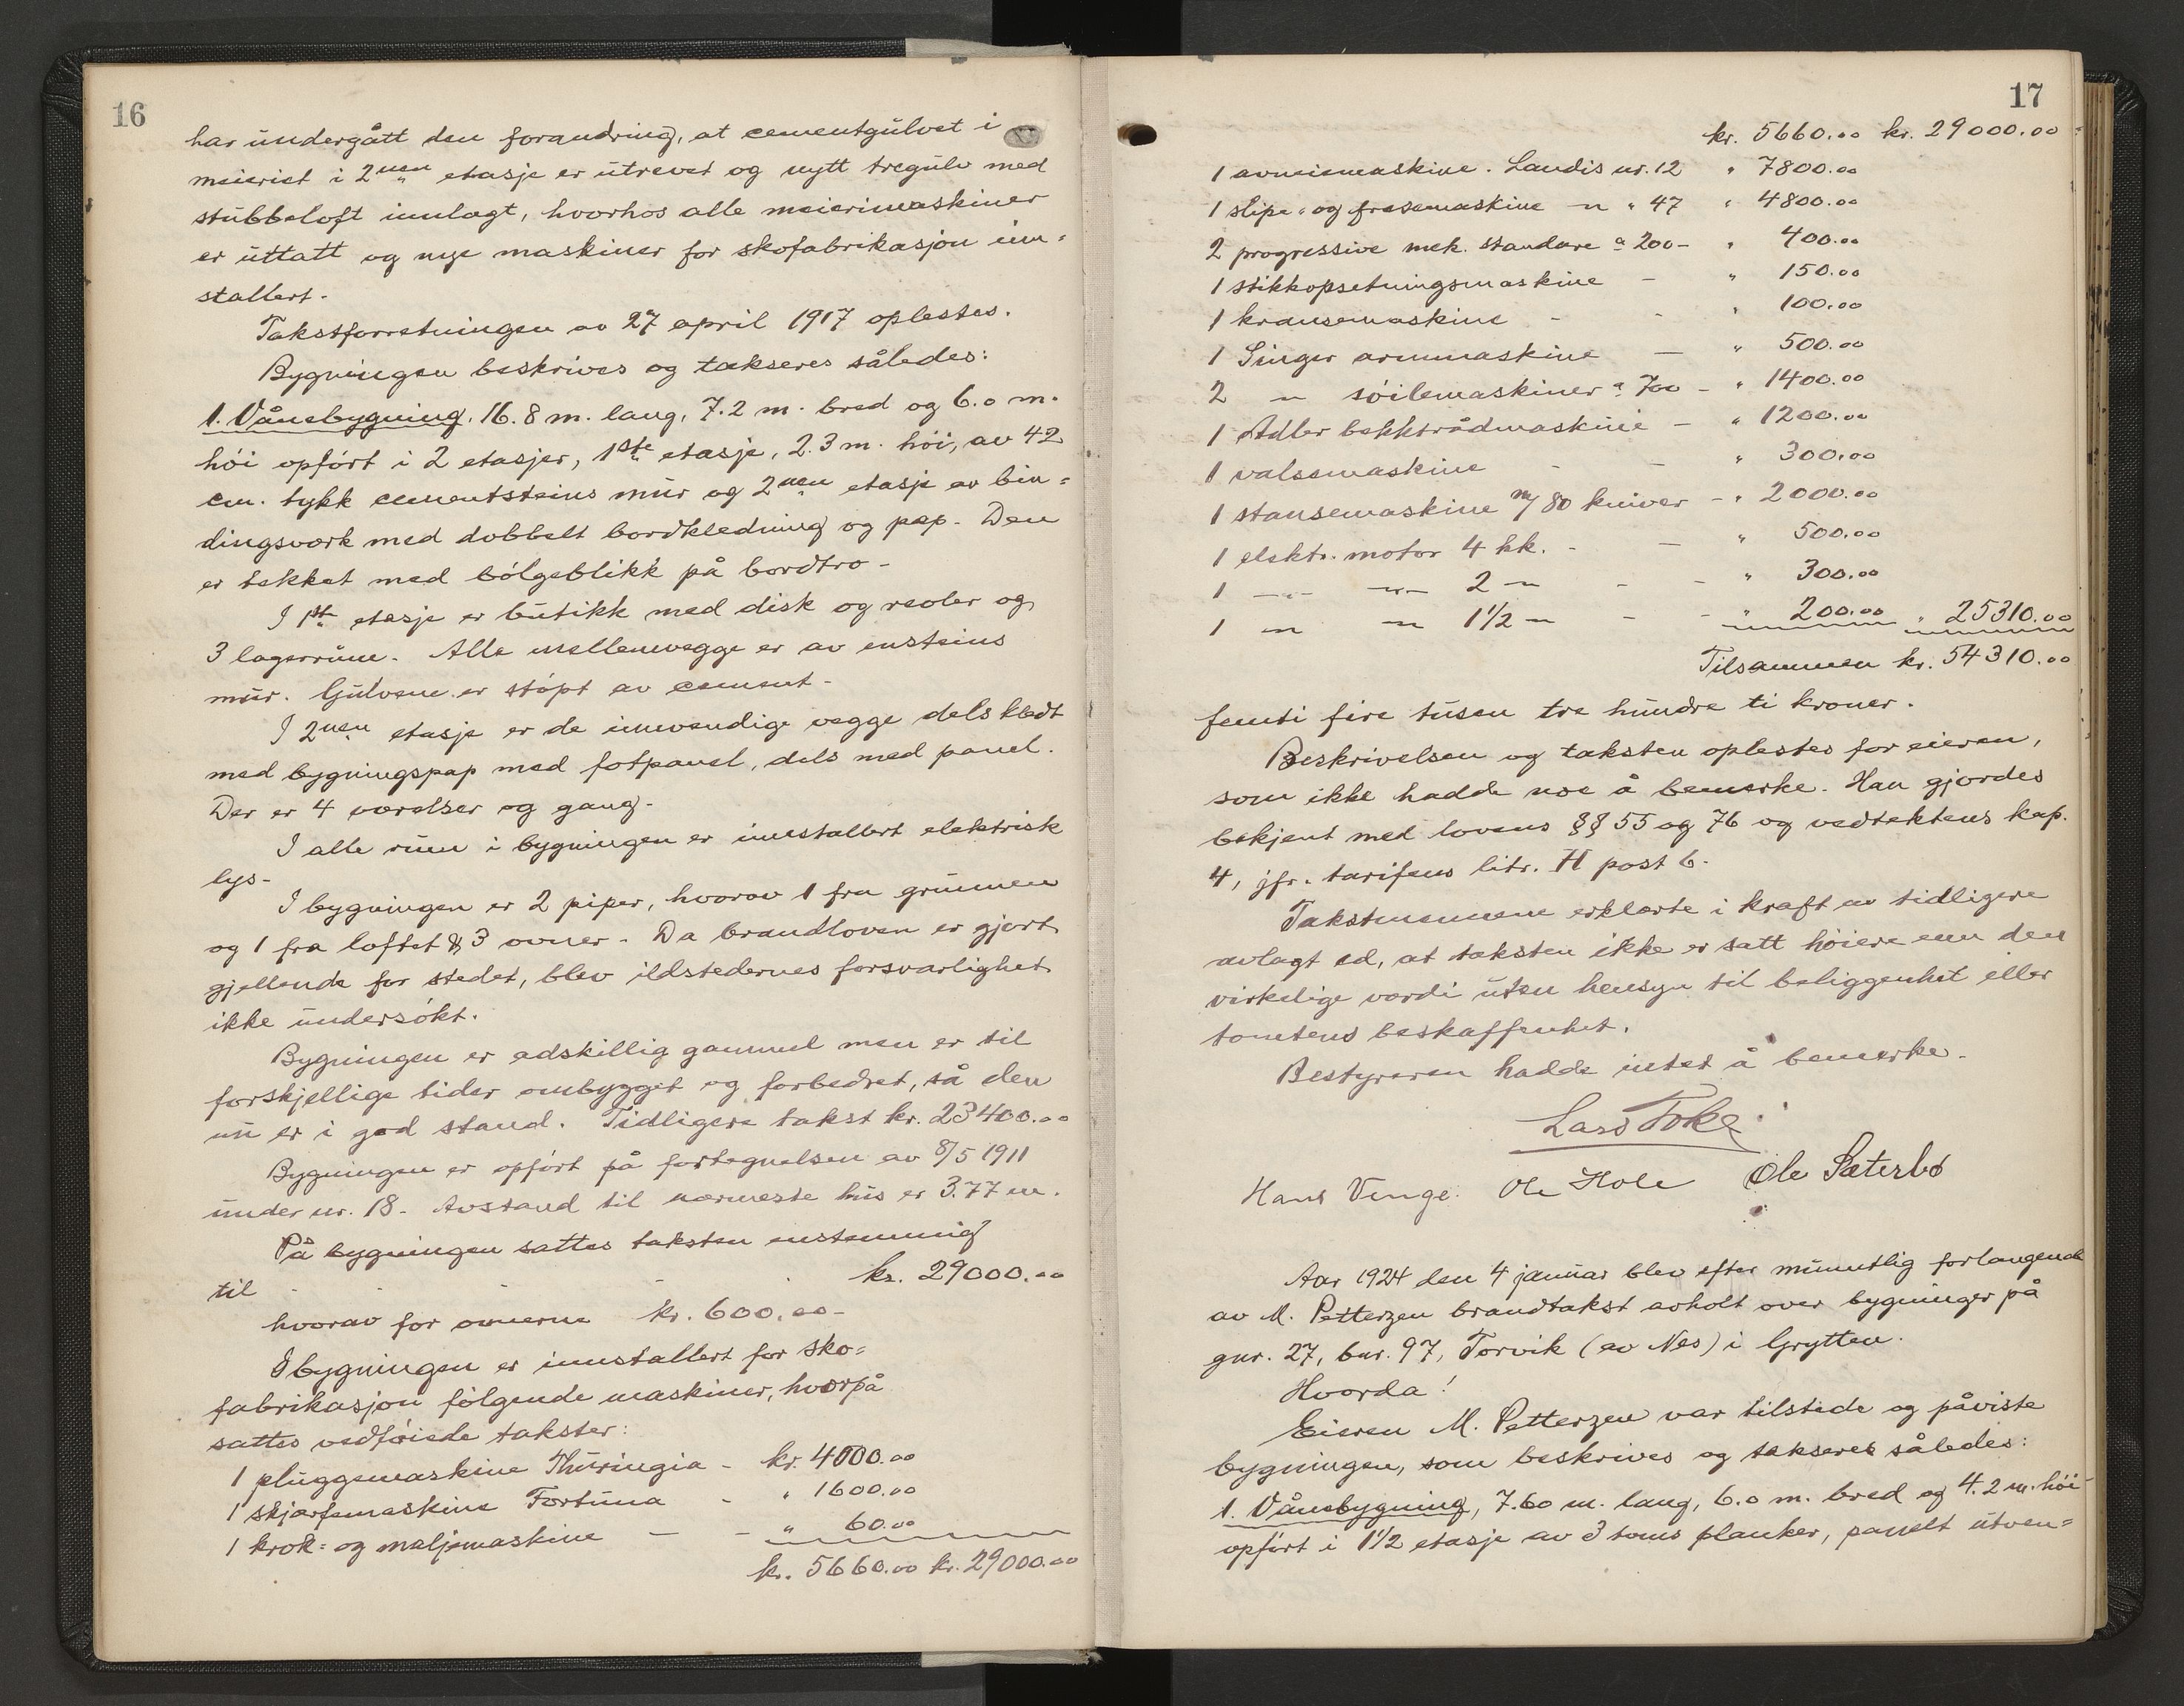 16
har undergått den forandring, at cementgulvet i
meieriet i 2nen etasje er utrevet og nytt tregulv med
stubbeloft innlagt, hvorhos alle meierimaskiner
er uttatt og nye maskiner for skofabrikasjon inn=
stallert.
Takstforretningen av 27 april 1917 oplestes.
Bygningen beskrives og takseres således:
1. Vånebygning, 16.8 m. lang, 7.2 m. bred og 6.0 m.
höi opfört i 2 etasjer, 1ste etasje, 2.3 m. höi, av 42
cm. tykk cementsteins mur og 2nen etasje av bin=
dingsverk med dobbelt bordkledning og pap. Den
er tekket med bölgeblikk på bordtro-
I 1ste etasje er butikk med disk og reoler og
3 lagerrum. Alle mellemvegge er av ensteins
mur. Gulvene er stöpt av cement-
I 2nen etasje er de innvendige vegge dels kledt
med bygningspap med fotpanel, dels med panel.
Der er 4 værelser og gang-
I alle rum i bygningen er installert elektrisk
lys-
I bygningen er 2 piper, hvorav 1 fra grunnen
og 1 fra loftet & 3 ovner. Da brandloven er gjort
gjellende for stedet, blev ildstedernes forsvarlighet
ikke undersökt.
Bygningen er adskillig gammel men er til
forskjellige tider ombygget og forbedret, så den
nu er i god stand. Tidligere takst kr. 23400.00
Bygningen er opfört på fortegnelsen av 8/5 1911
under nr. 18. Avstand til nærmeste hus er 3.77 m.
På bygningen sattes taksten enstemmig
til - - - kr. 29000.00
hvorav for ovnerne kr. 600.00-
I bygningen er innstallert for sko=
fabrikasjon fölgende maskiner, hvorpå
sattes vedföiede takster:
1 pluggemaskine Thüringia - kr. 4000.00
1 skjærfemaskine Fortuna - " 1600.00
1 krok= og maljemaskine - - " 60.00
kr. 5660.00 kr. 29000.00
17
kr. 5660.00 kr. 29000.00
1 avneiemaskine. Landis nr. 12 " 7800.00
1 slipe= og fresemaskine -"- " 47 " 4800.00
2 progressive mek. standare a 200- " 400.00
1 stikkopsetningsmaskine - " 150.00
1 kransemaskine - - " 100.00
1 Singer armmaskine - " 500.00
2 -"- söilemaskiner a 700 - " 1400.00
1 Adler bekktrådmaskine - " 1200.00
1 valsemaskine - - " 300.00
1 stansemaskine m/80 kniver - " 2000.00
1 elektr. motor 4 hk. - - " 500.00
1 -"- -"- 2 -"- - - " 300.00
1 -"- -"- 1 1/2 -"- - - " 200.00 " 25310.00
Tilsammen kr. 54310.00
femti fire tusen tre hundre ti kroner.
Beskrivelsen og taksten oplestes for eieren,
som ikke hadde noe å bemerke. Han gjordes
bekjent med lovens §§ 55 og 76 og vedtektens kap.
4, jfr. tarifens litr. H post 6.
Takstmennene erklærte i kraft av tidligere
avlagt ed, at taksten ikke er satt höiere enn den
virkelige verdi uten hensyn til beliggenhet eller
tomtens beskaffenhet.
Bestyreren hadde intet å bemerke.
Lars Toke
Hans Venge. Ole Hole Ole Sæterbö
Aar 1924 den 4 januar blev efter muntlig forlangende
av M. Petterzen brandtakst avholt over bygninger på
gnr. 27, bnr. 97, Torvik (av Nes) i Grytten.
Hvorda!
Eieren M. Petterzen var tilstede og påviste
bygningen, som beskrives og takseres således:
1. Vånebygning, 7.60 m. lang, 6.0 m. bred og 4.2 m. höi-
opfört i 1 1/2 etasje av 3 toms planker, panelt utven=